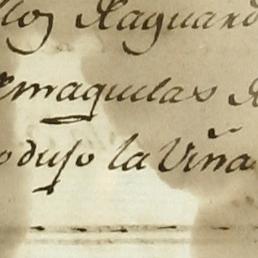 llos Raguard
emaquilas R
odujo la Viña